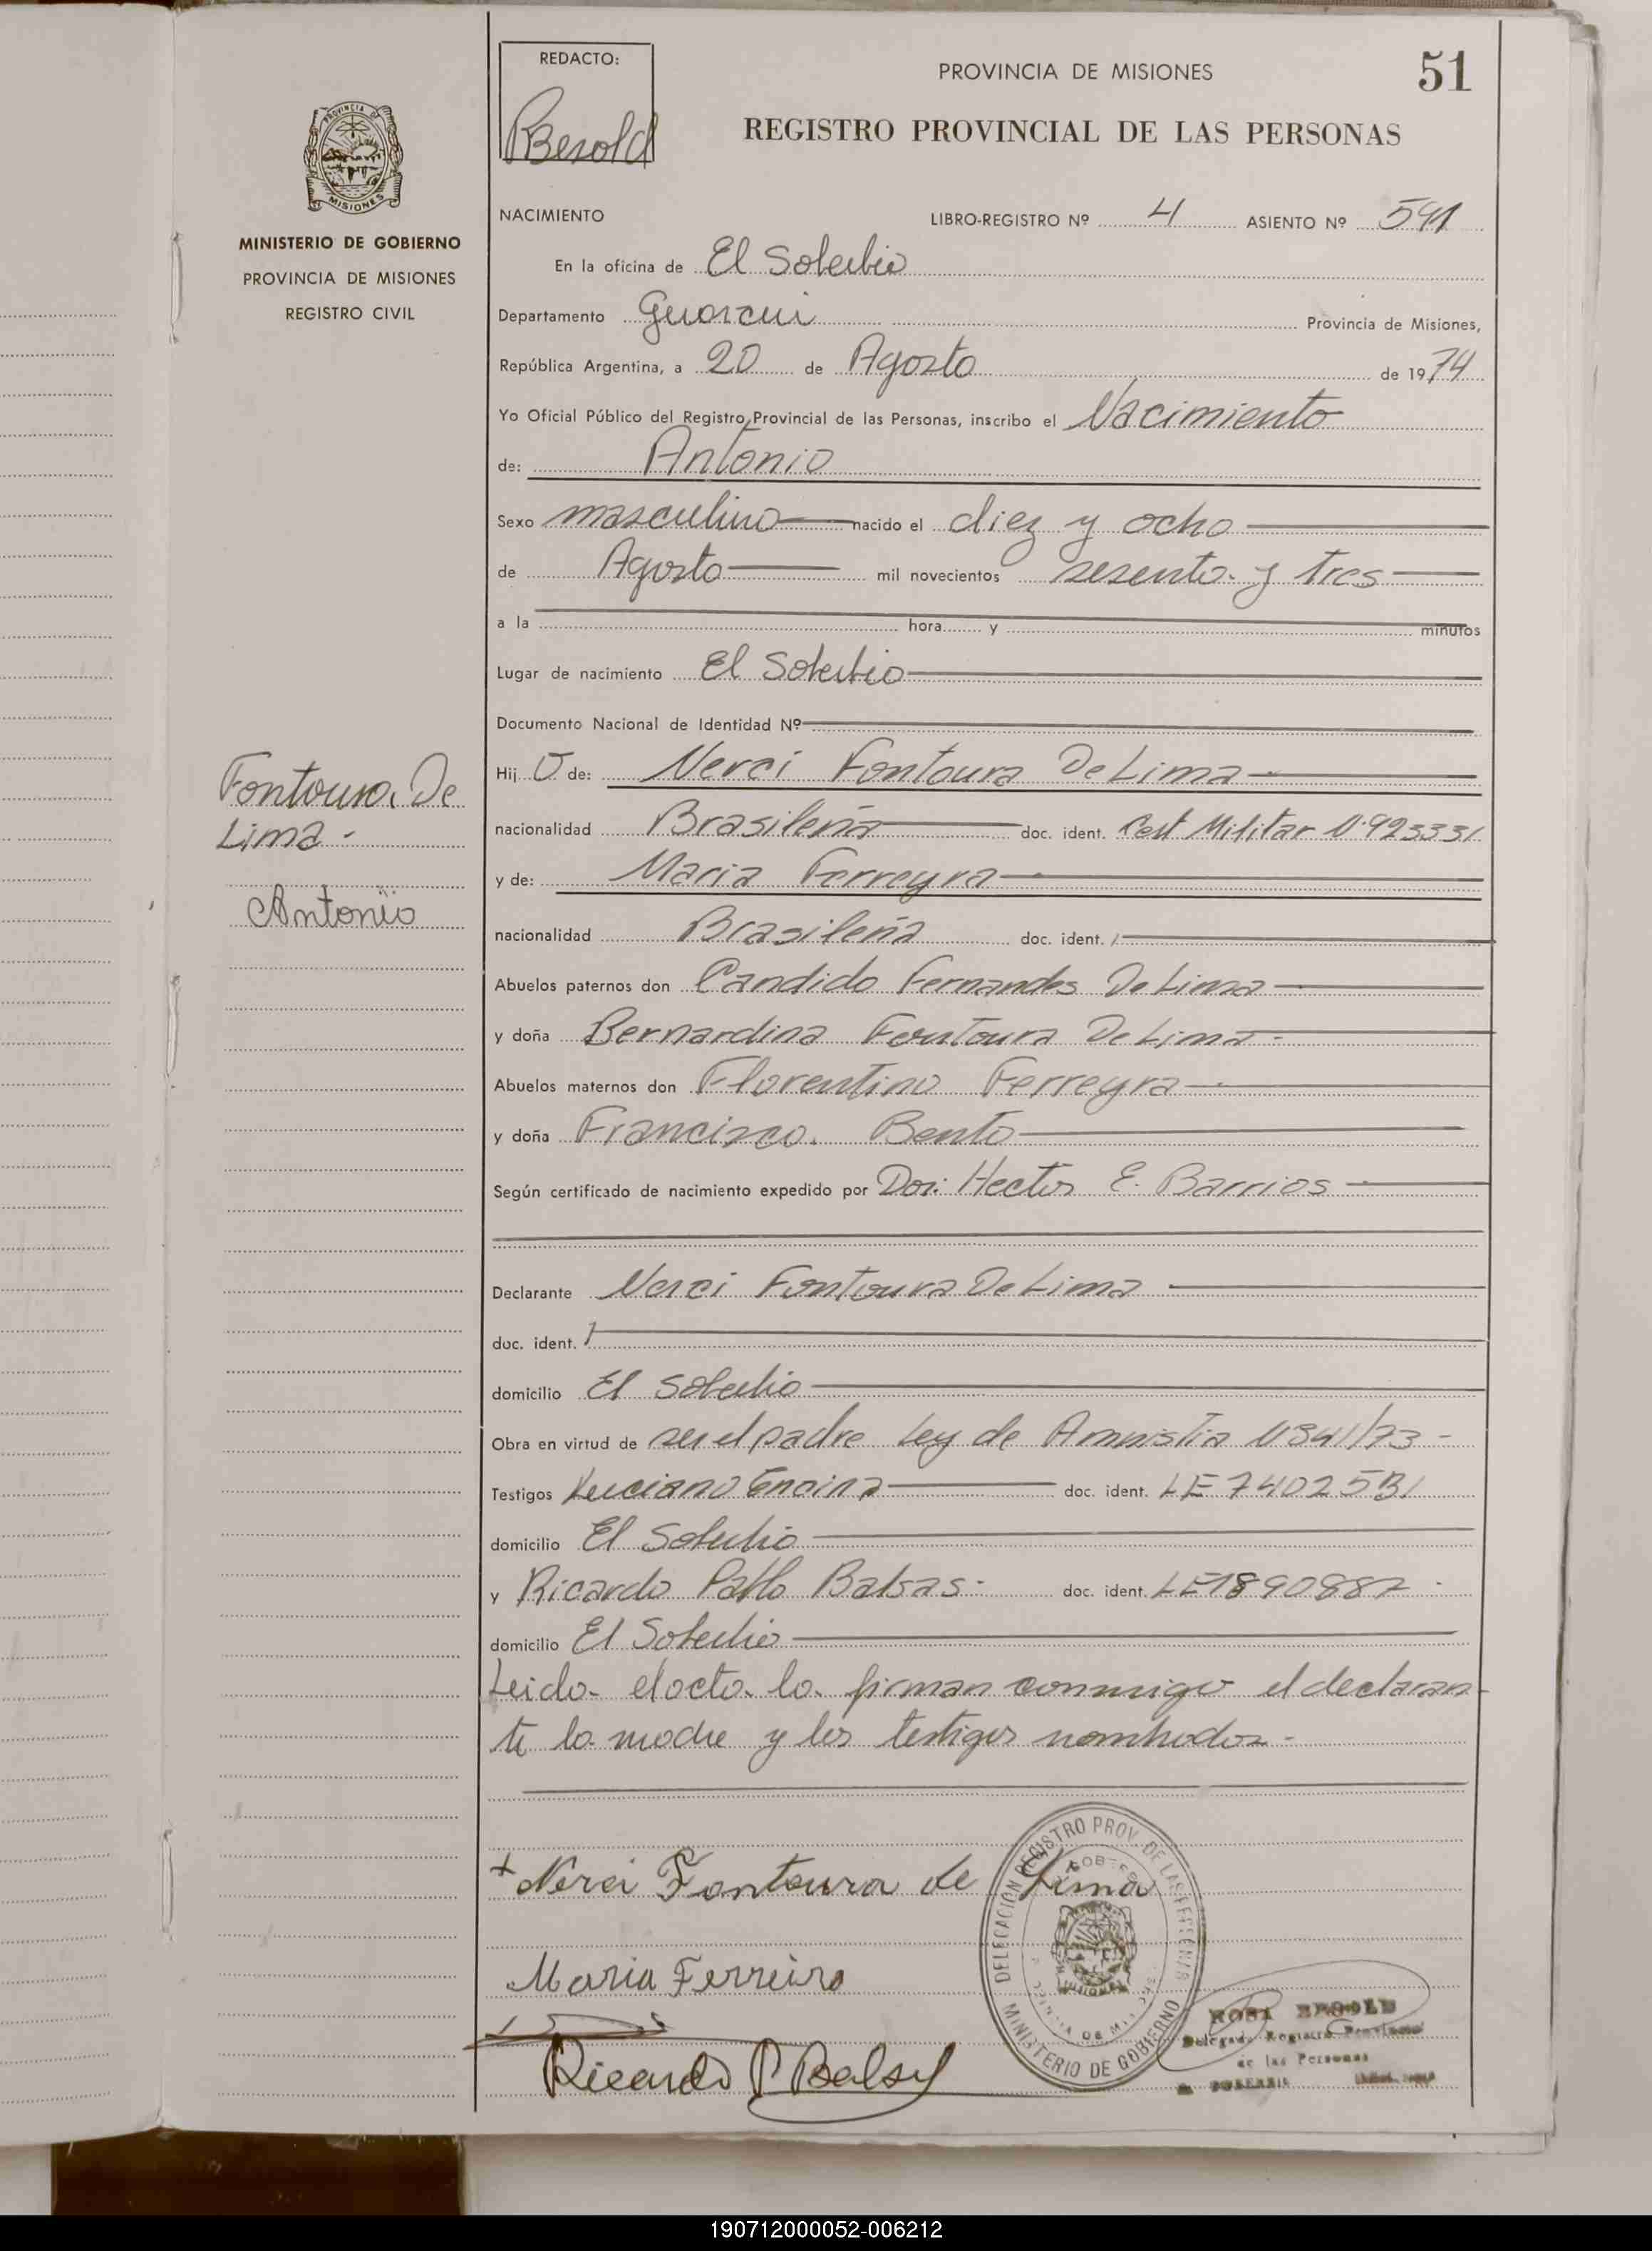 REDACTO:
PROVINCIA DE MISIONES
51
RBesold
REGISTRO PROVINCIAL DE LAS PERSONAS
MINISTERIO DE GOBIERNO
PROVINCIA DE MISIONES
REGISTRO CIVIL
NACIMIENTO LIBRO-REGISTRO Nº 4 ASIENTO Nº 541
En la oficina de El Soberbio
Departamento Guarani Provincia de Misiones,
República Argentina, a 20 de Agosto de 1974
Yo Oficial Público del Registro Provincial de las Personas, inscribo el Nacimiento
de: Antonio
Sexo masculino nacido el diez y ocho
de Agosto mil novecientos sesenta y tres
a la hora y minutos
Lugar de nacimiento El Soberbio
Documento Nacional de Identidad Nº
Fontoura De
Lima -
Antonio
Hij o de: Nerci Fontoura De Lima
nacionalidad Brasileña doc. ident. Cert Militar N. 923331
y de: Maria Ferreyra
nacionalidad Brasileña doc. ident.
Abuelos paternos don Candido Fernandes De Lima
y doña Bernardina Fontoura De Lima -
Abuelos maternos don Florentino Ferreyra
y doña Francisca Bento
Según certificado de nacimiento expedido por Dor: Hector E. Barrios
Declarante Nerci Fontoura De Lima
doc. ident.
domicilio El Soberbio
Obra en virtud de ser el padre Ley de Amnistia N 341/73 -
Testigos Luciano Encina doc. ident. LE 7402531
domicilio El Soberbio
y Ricardo Pablo Balsas - doc. ident. LE 1890887 -
domicilio El Soberbio
Leida el acta la firman conmigo el declaran-
te la madre y los testigos nombrados -
+ Nerci Fontoura de Lima
Maria Ferreira
Ricardo P Balsas
DELEGACION REGISTRO PROV. DE LAS PERSONAS
MINISTERIO DE GOBIERNO
ROSA BESOLD
Delegada Registro Provincial
de las Personas
190712000052-006212